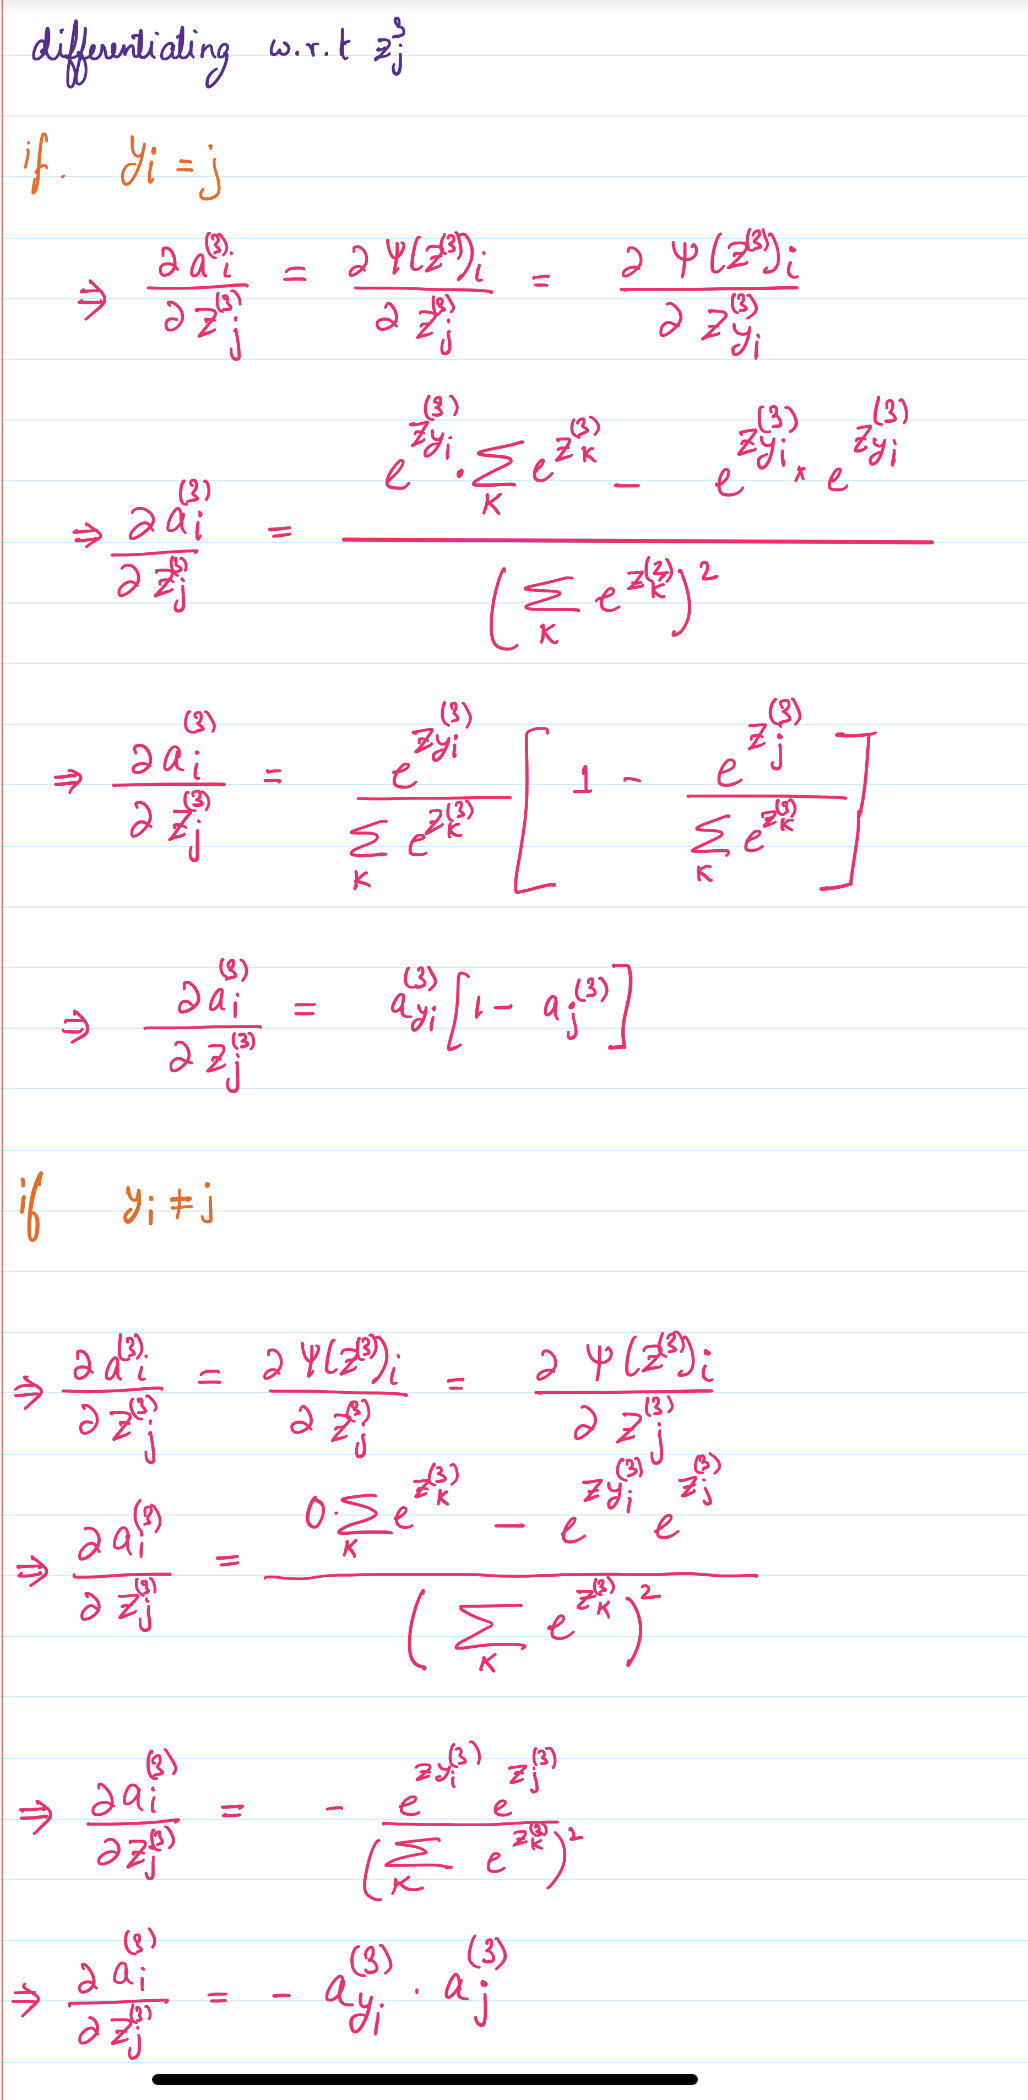 differentiating w.r.t z_j^3
if. y_i = j
⇒ ∂a_i^(3) / ∂z_j^(3) = ∂Ψ(z^(3))_i / ∂z_j^(3) = ∂Ψ(z^(3))_i / ∂z_{y_i}^(3)
⇒ ∂a_i^(3) / ∂z_j^(3) = (e^{z_{y_i}^(3)} · Σ_K e^{z_K^(3)} − e^{z_{y_i}^(3)} × e^{z_{y_i}^(3)}) / (Σ_K e^{z_K^(3)})^2
⇒ ∂a_i^(3) / ∂z_j^(3) = e^{z_{y_i}^(3)} / Σ_K e^{z_K^(3)} [1 − e^{z_j^(3)} / Σ_K e^{z_K^(3)}]
⇒ ∂a_i^(3) / ∂z_j^(3) = a_{y_i}^(3) [1 − a_j^(3)]
if y_i ≠ j
⇒ ∂a_i^(3) / ∂z_j^(3) = ∂Ψ(z^(3))_i / ∂z_j^(3) = ∂Ψ(z^(3))_i / ∂z_j^(3)
⇒ ∂a_i^(3) / ∂z_j^(3) = (0·Σ_K e^{z_K^(3)} − e^{z_{y_i}^(3)} e^{z_j^(3)}) / (Σ_K e^{z_K^(3)})^2
⇒ ∂a_i^(3) / ∂z_j^(3) = − e^{z_{y_i}^(3)} e^{z_j^(3)} / (Σ_K e^{z_K^(3)})^2
⇒ ∂a_i^(3) / ∂z_j^(3) = − a_{y_i}^(3) · a_j^(3)